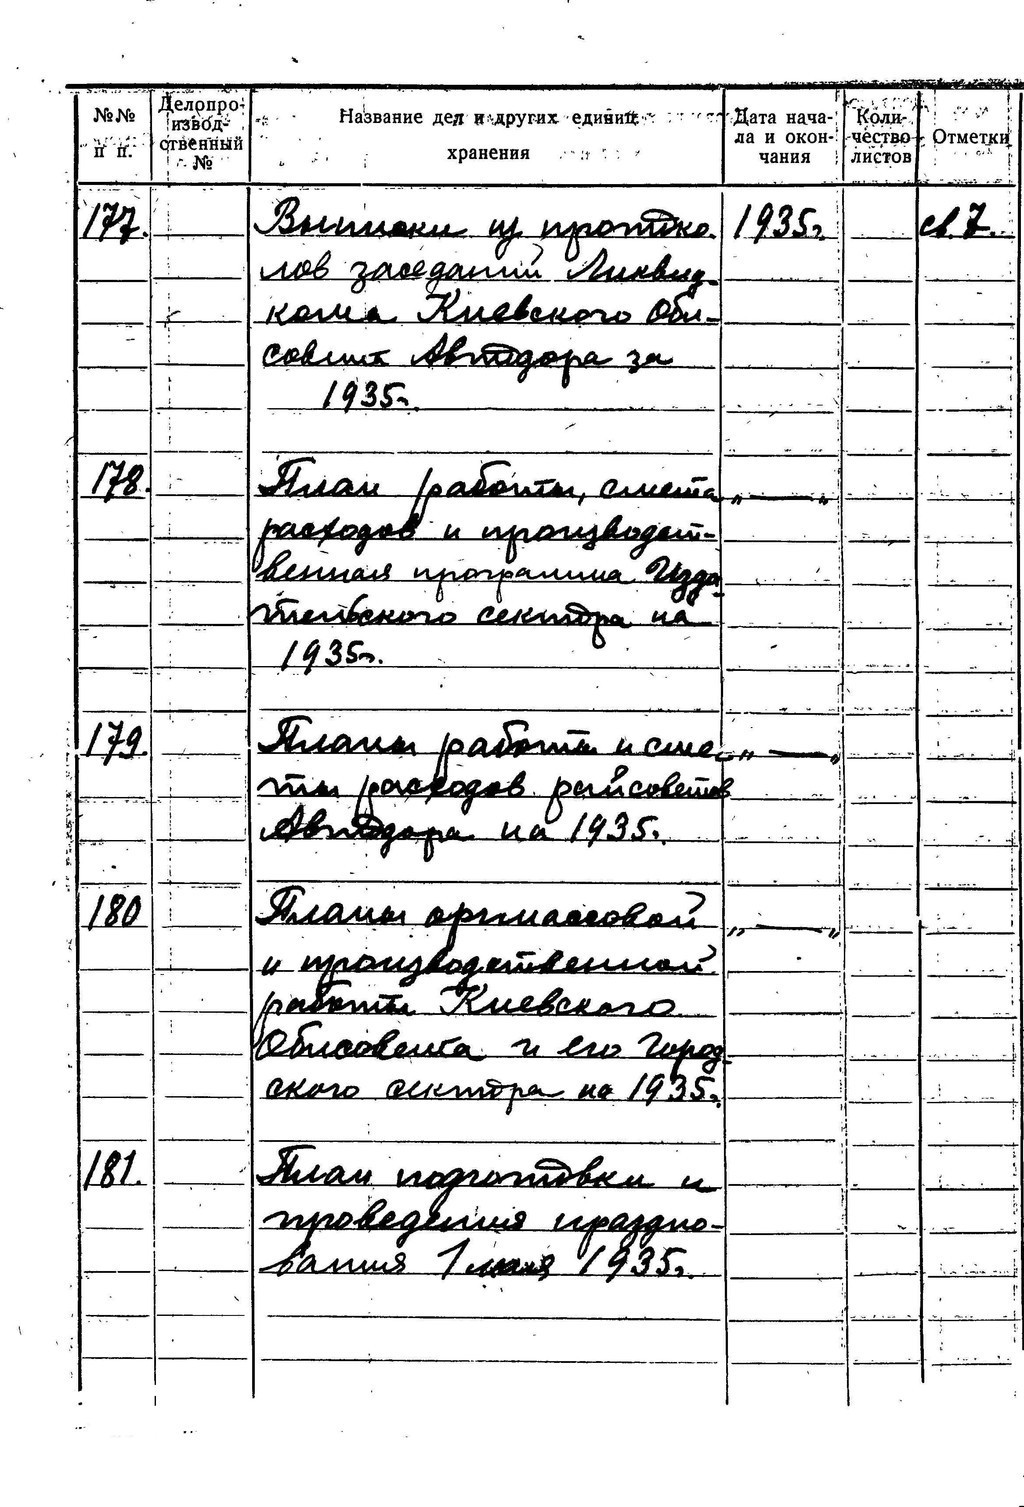 №№ п п.
Делопроизводственный №
Название дел и других единиц хранения
Дата начала и окончания
Количество листов
Отметки
177. Выписки из протоко- 1935г. св. 7.
лов заседаний Ликвид-
кома Киевского Обл-
совета Автодора за
1935г.
178. План работы, смета „ — „
расходов и производст-
венная программа Изда-
тельского сектора на
1935г.
179. Планы работы и сме- „ — „
ты расходов райсоветов
Автодора на 1935г.
180 Планы оргмассовой „ — „
и производственной
работы Киевского
Облсовета и его Город-
ского сектора на 1935г.
181. План подготовки и
проведения праздно-
вания 1 мая 1935г.